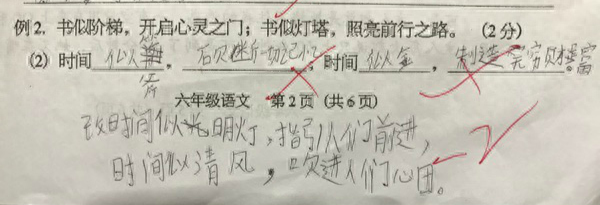 例2. 书似阶梯，开启心灵之门；书似灯塔，照亮前行之路。（2分）
(2) 时间 似 ，切记忆，时间 似金，制造无穷财富
六年级语文 第2页（共6页）
改时间似光明灯，指引人们前进，
时间似清风，吹进人们心田。